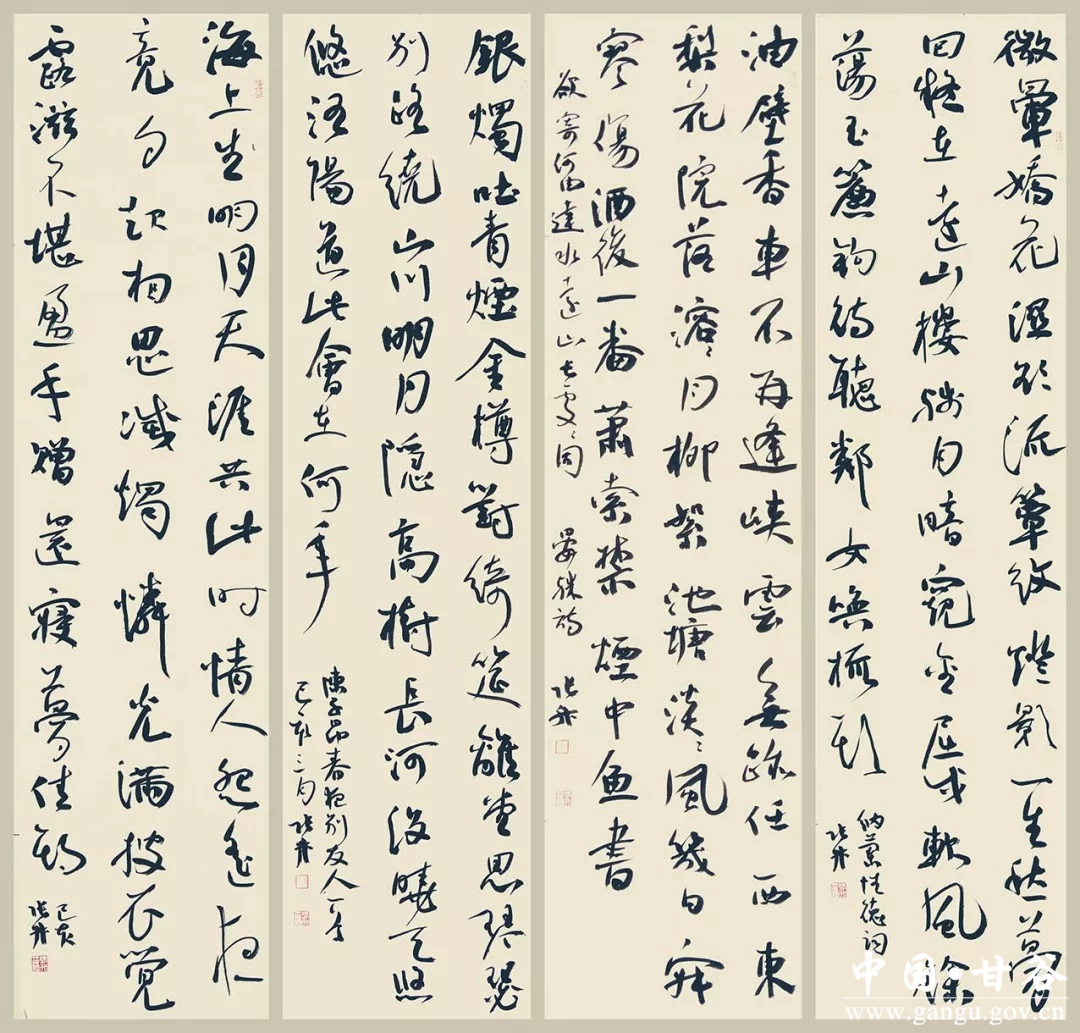 微暈嬌花濕欲流簟紋燈影一生愁夢
回疑在遠山樓殘月暗窺金屈戌軟風徐
蕩玉簾鈎待聽鄰女喚梳頭
納蘭性德詞
油壁香車不再逢峽雲無跡任西東
梨花院落溶〻月柳絮池塘淡〻風幾日寂
寥傷酒後一番蕭索禁煙中魚書
欲寄何由達水遠山長處〻同 晏殊詩
銀燭吐青煙金樽對綺筵離堂思琴瑟
別路繞山川明月隱高樹長河沒曉天悠
悠洛陽道此會在何年
陳子昂春夜別友人一首
己亥三月
海上生明月天涯共此時情人怨遙夜
竟夕起相思滅燭憐光滿披衣覺
露滋不堪盈手贈還寢夢佳期
己亥
中国·甘谷
www.gangu.gov.cn